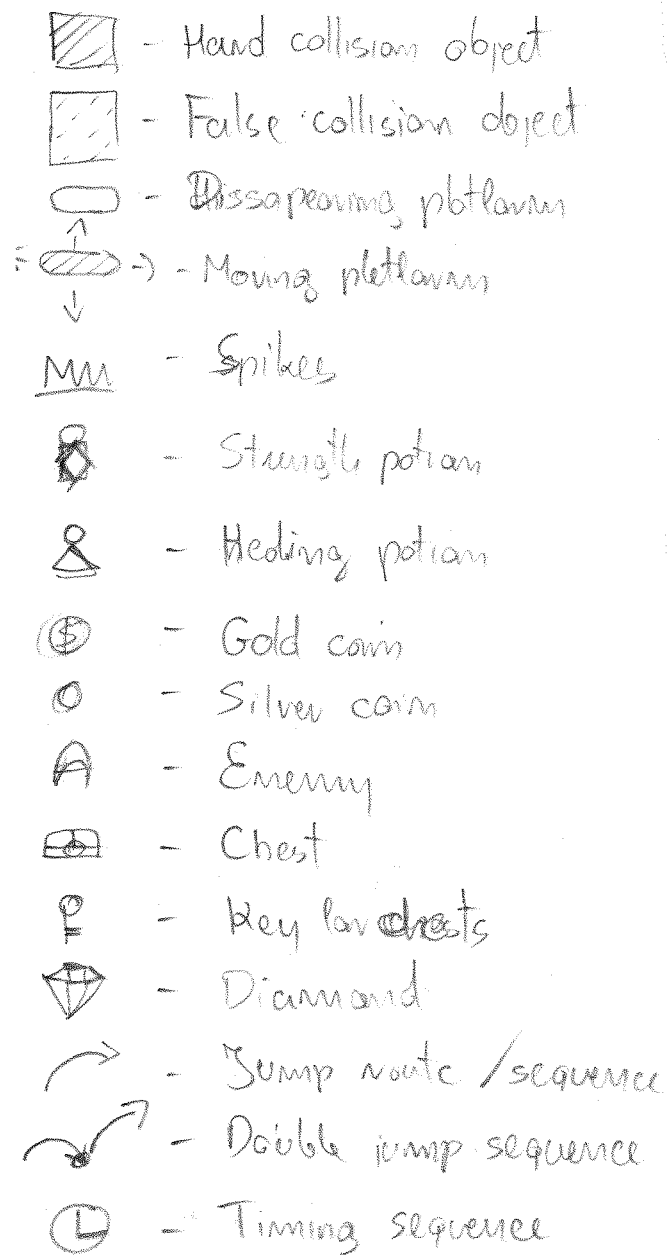 - Hard collision object
- False collision object
- Dissapearing platform
- Moving platform
- Spikes
- Strength potion
- Healing potion
$ - Gold coin
- Silver coin
- Enemy
- Chest
- Key for chests
- Diamond
- Jump route / sequence
- Double jump sequence
- Timing sequence